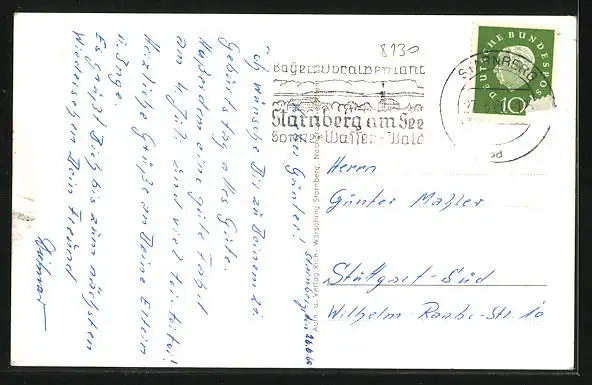 8130
Bayer. Voralpenland
Starnberg am See
Sonne-Wasser-Wald
STARNBERG
DEUTSCHE BUNDESPOST
10
Starnberg, den 26.6.60
Lieber Günter!
Ich wünsche Dir zu Deinem
Geburtstag alles Gute.
Außerdem eine gute Fahrt
am 4. Juli und viel
Herzliche Grüße an Deine Eltern
u. Inge.
Es grüßt Dich bis zum nächsten
Wiedersehen Dein Freund
Dietmar
Aufn. u. Verlag Rich. Wörsching Starnberg.
Herrn
Günter Mahler
Stuttgart-Süd
Wilhelm-Raabe-Str. 10